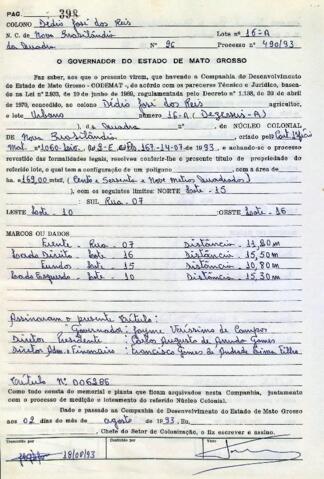 PAG. 398
COLONO Dédis José dos Reis
N. C. de Nova Brasilândia Lote nº 16-A
da Quadra Nº 26 Processo nº 490/93
O GOVERNADOR DO ESTADO DE MATO GROSSO
Faz saber, aos que o presente virem, que havendo a Companhia de Desenvolvimento
do Estado de Mato Grosso - CODEMAT -, de acôrdo com os pareceres Técnico e Jurídico, basean-
do na Lei nº 2.903, de 19 de junho de 1969, regulamentada pelo Decreto nº 1.138, de 20 de abril
de 1970, concedido, ao colono Dédis José dos Reis agricultor,
e lote Urbano número 16-A (Dezesseis-A)
da Quadra do NÚCLEO COLONIAL
de Nova Brasilândia criado pela
Mat. nº 1060 167-14-07 de 1993, e achando-se o processo
revestido das formalidades legais, resolveu conferir-lhe o presente título de propriedade do
referido lote, o qual tem a configuração de um polígono com a área de
ha 169,00 mts². (Cento e Sessenta e Nove Metros Quadrados)
), com os seguintes limites: NORTE Lote-15
: SUL Rua 07
LESTE Lote-10 :OESTE Lote-16
MARCOS OU DADOS
Frente - Rua 07 Distância - 11,20m
Lado Direito - Lote 16 Distância - 15,50m
Fundos - Lote 15 Distância - 10,80m
Lado Esquerdo - Lote 10 Distância - 15,30m
Assinaram o presente título:
Governador: Jayme Veríssimo de Campos
Diretor Presidente : Carlos Augusto de Arruda Gomes
Diretor Adm. e Financeiro : Francisco Gomes de Andrade Lima Filho
Título nº 006286
Como tudo consta do memorial e planta que ficam arquivados nesta Companhia, juntamente
com o processo de medição e loteamento do referido Núcleo Colonial.
Dado e passado na Companhia de Desenvolvimento do Estado de Mato Grosso
aos 02 dias do mês de agosto de 1993. Eu,
, Chefe do Setor de Colonização, o fiz escrever e assino.
Transcrito por Conferido por Visto
18/08/93